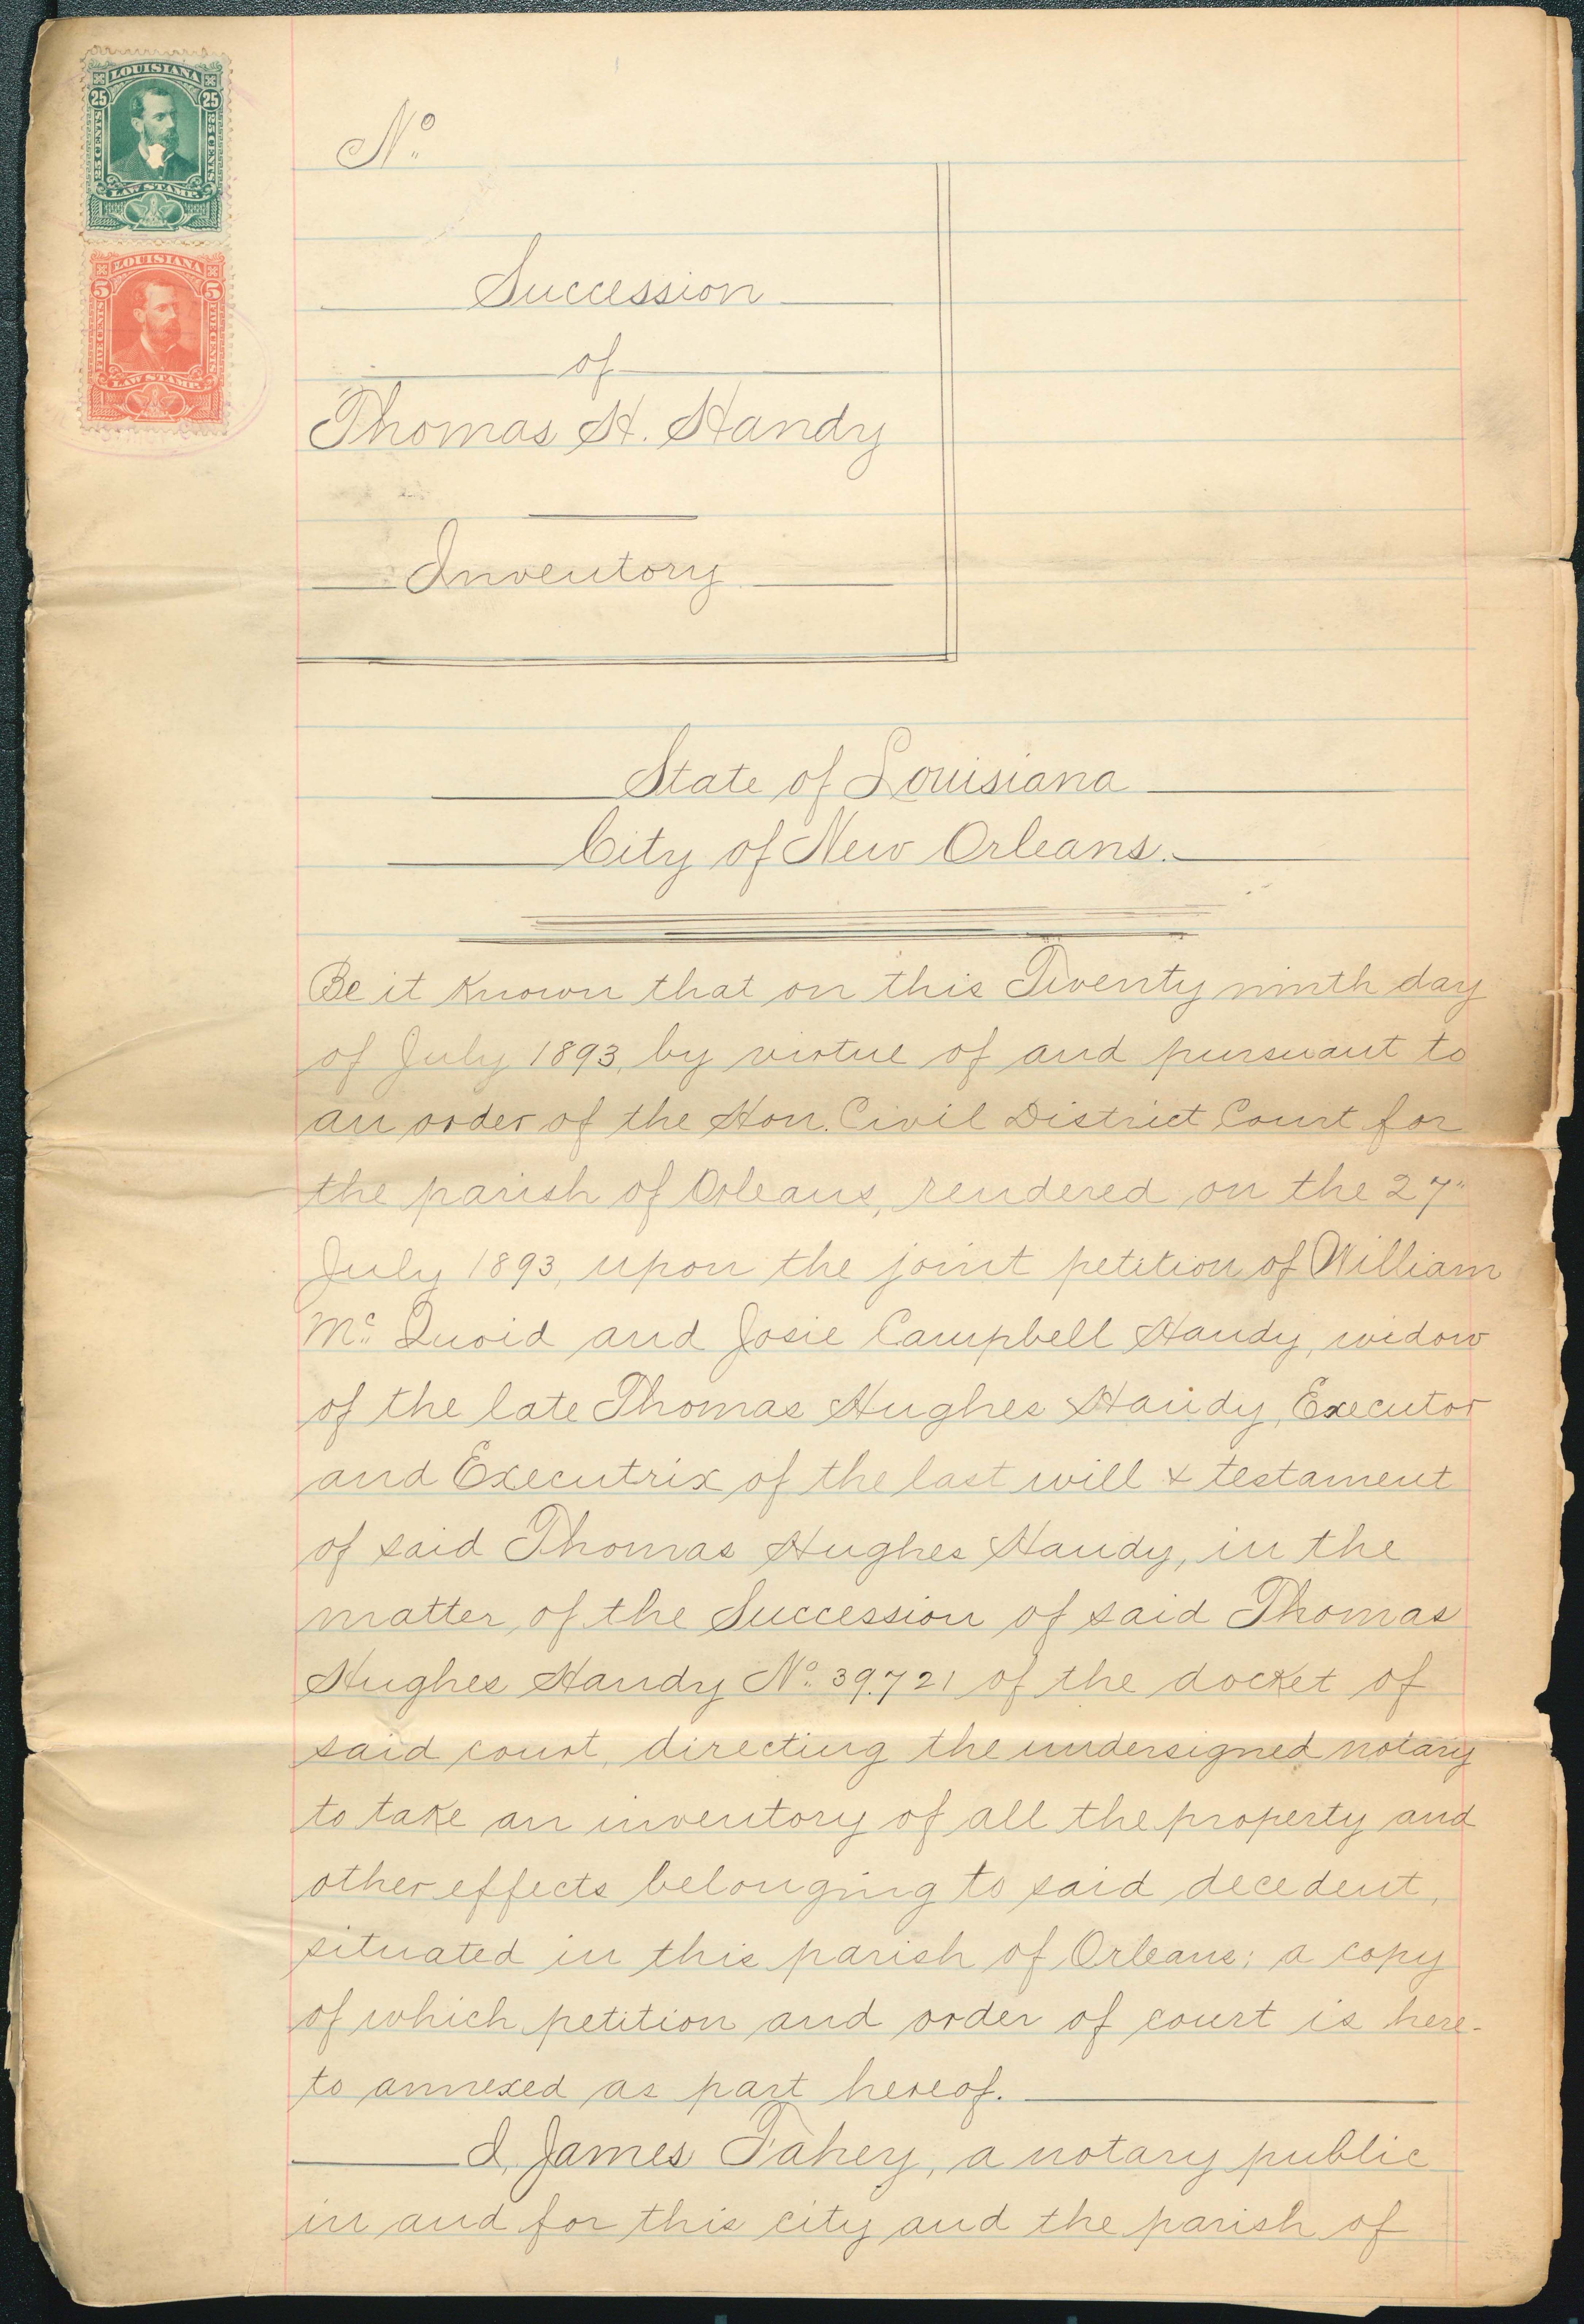 LOUISIANA
25 25
25 CENTS 25 CENTS
LAW STAMP.
LOUISIANA
5 5
FIVE CENTS FIVE CENTS
LAW STAMP.
No.
Succession
of
Thomas H. Handy
Inventory
State of Louisiana
City of New Orleans.
Be it known that on this Twenty ninth day
of July 1893, by virtue of and pursuant to
an order of the Hon. Civil District Court for
the parish of Orleans, rendered on the 27"
July 1893, upon the joint petition of William
Mc Quoid and Josie Campbell Handy, widow
of the late Thomas Hughes Handy, Executor
and Executrix of the last will & testament
of said Thomas Hughes Handy, in the
matter, of the Succession of said Thomas
Hughes Handy No. 39.721 of the docket of
said court, directing the undersigned notary
to take an inventory of all the property and
other effects belonging to said decedent,
situated in this parish of Orleans; a copy
of which petition and order of court is here-
to annexed as part hereof.
I, James Fahey, a notary public
in and for this city and the parish of